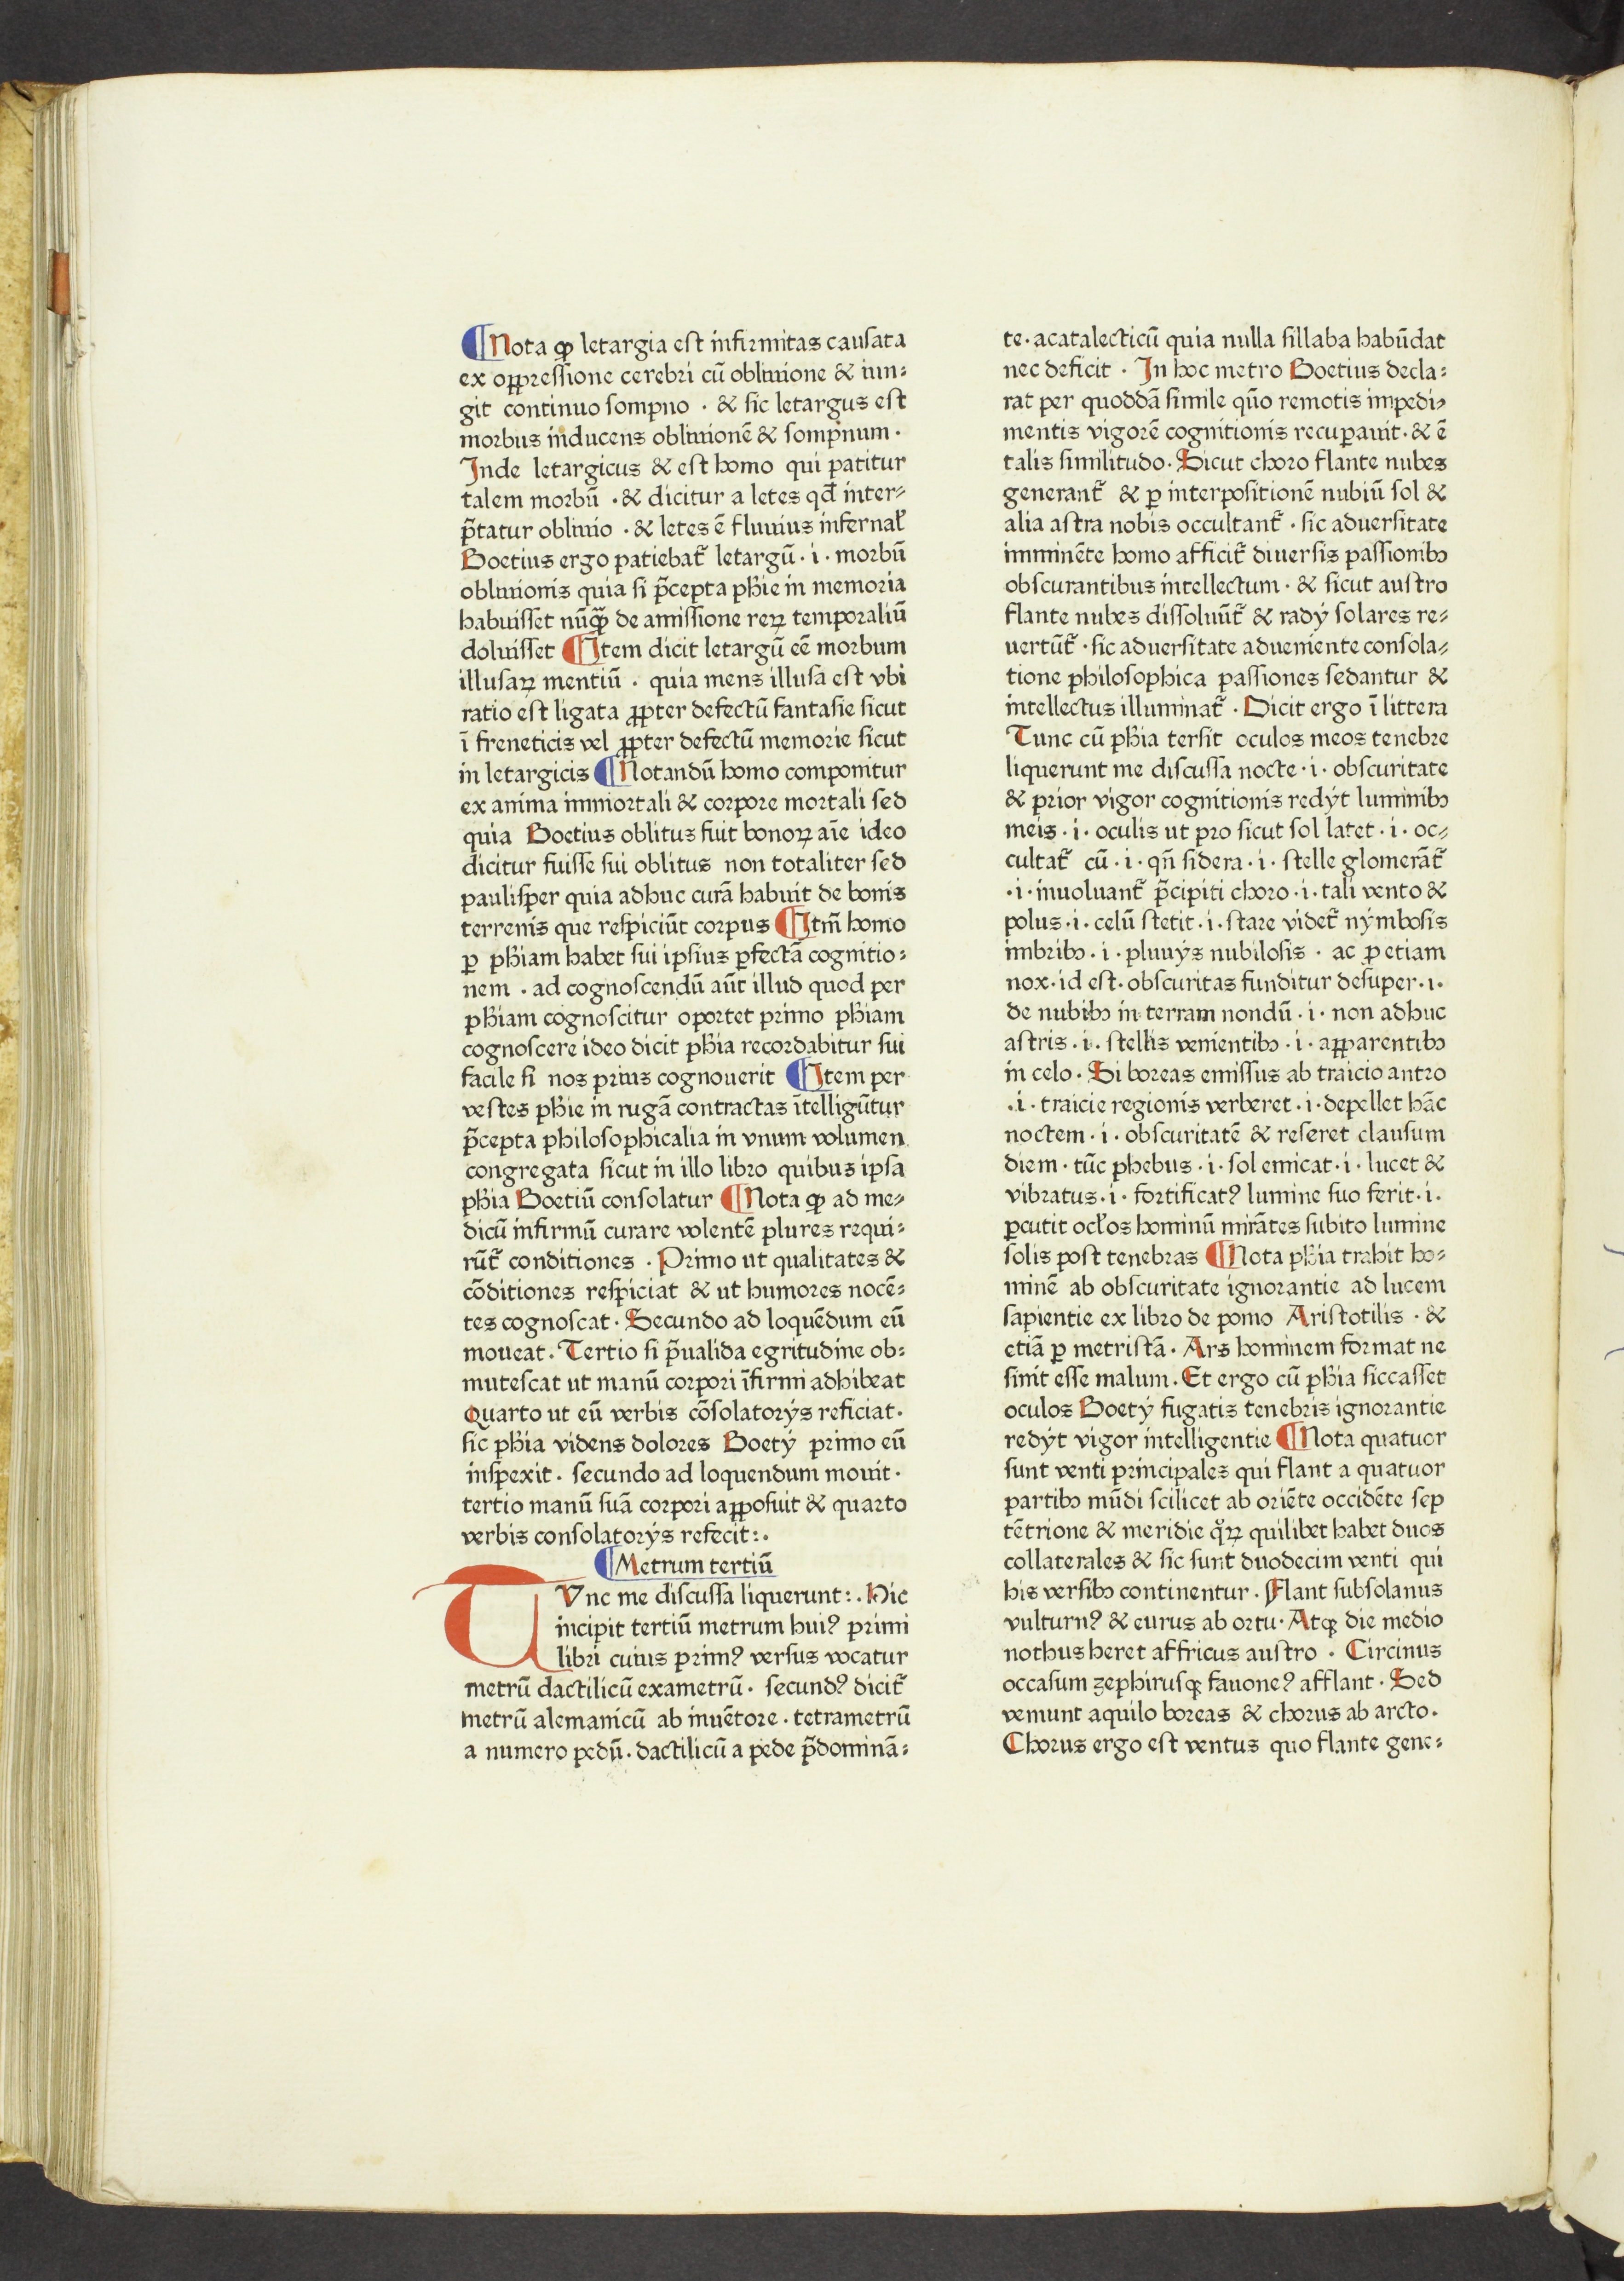 ¶Nota ꝙ letargia est infirmitas causata
ex oppressione cerebri cū obliuione & iun⸗
git continuo sompno · & sic letargus est
morbus inducens obliuionē & sompnum ·
Inde letargicus & est homo qui patitur
talem morbū · & dicitur a letes qd̄ inter⸗
p̄tatur obliuio · & letes ē fluuius infernaƚ
Boetius ergo patiebat̄ letargū · i · morbū
obliuionis quia si p̄cepta ph̄ie in memoria
habuisset nūꝙ̄ de amissione reꝝ temporaliū
doluisset ¶Item dicit letargū eē morbum
illusaꝝ mentiū · quia mens illusa est vbi
ratio est ligata ꝓpter defectū fantasie sicut
ī freneticis vel ꝓpter defectū memorie sicut
in letargicis ¶Notandū homo componitur
ex anima immortali & corpore mortali sed
quia Boetius oblitus fuit bonoꝝ aīe ideo
dicitur fuisse sui oblitus non totaliter sed
paulisper quia adhuc curā habuit de bonis
terrenis que respiciūt corpus ¶Itm̄ homo
ꝑ ph̄iam habet sui ipsius ꝑfectā cognitio⸗
nem · ad cognoscendū aūt illud quod per
ph̄iam cognoscitur oportet primo ph̄iam
cognoscere ideo dicit ph̄ia recordabitur sui
facile si nos prius cognouerit ¶Item per
vestes ph̄ie in rugā contractas ītelligūtur
p̄cepta philosophicalia in vnum volumen
congregata sicut in illo libro quibus ipsa
ph̄ia Boetiū consolatur ¶Nota ꝙ ad me⸗
dicū infirmū curare volentē plures requi⸗
rūt̄ conditiones · Primo ut qualitates &
cōditiones respiciat & ut humores nocē⸗
tes cognoscat · Secundo ad loquēdum eū
moueat · Tertio si p̄ualida egritudine ob⸗
mutescat ut manū corpori īfirmi adhibeat
Quarto ut eū verbis cōsolatorÿs reficiat ·
sic ph̄ia videns dolores Boetÿ primo eū
inspexit · secundo ad loquendum mouit ·
tertio manū suā corpori apposuit & quarto
verbis consolatorÿs refecit : ·
¶Metrum tertiū
TVnc me discussa liquerunt : · Hic
incipit tertiū metrum huiꝰ primi
libri cuius primꝰ versus vocatur
metrū dactilicū exametrū · secundꝰ dicit̄
metrū alemanicū ab inuētore · tetrametrū
a numero pedū · dactilicū a pede p̄dominā⸗
te · acatalecticū quia nulla sillaba habūdat
nec deficit · In hoc metro Boetius decla⸗
rat per quoddā simile qūo remotis impedi⸗
mentis vigorē cognitionis recuꝑauit · & ē
talis similitudo · Sicut choro flante nubes
generant̄ & ꝑ interpositionē nubiū sol &
alia astra nobis occultant̄ · sic aduersitate
imminēte homo afficit̄ diuersis passionibꝫ
obscurantibus intellectum · & sicut austro
flante nubes dissoluūt̄ & radÿ solares re⸗
uertūt̄ · sic aduersitate adueniente consola⸗
tione philosophica passiones sedantur &
intellectus illuminat̄ · Dicit ergo ī littera
Tunc cū ph̄ia tersit oculos meos tenebre
liquerunt me discussa nocte · i · obscuritate
& prior vigor cognitionis redÿt luminibꝫ
meis · i · oculis ut pro sicut sol latet · i · oc⸗
cultat̄ cū · i · qn̄ sidera · i · stelle glomerāt̄
· i · inuoluant̄ p̄cipiti choro · i · tali vento &
polus · i · celū stetit · i · stare videt̄ nÿmbosis
imbribꝫ · i · pluuÿs nubilosis · ac ꝑ etiam
nox · id est · obscuritas funditur desuper · i ·
de nubibꝫ in terram nondū · i · non adhuc
astris · i · stellis venientibꝫ · i · apparentibꝫ
in celo · Si boreas emissus ab traicio antro
· i · traicie regionis verberet · i · depellet hāc
noctem · i · obscuritatē & reseret clausum
diem · tūc phebus · i · sol emicat · i · lucet &
vibratus · i · fortificatꝰ lumine suo ferit · i ·
ꝑcutit ocƚos hominū mirātes subito lumine
solis post tenebras ¶Nota ph̄ia trahit ho⸗
minē ab obscuritate ignorantie ad lucem
sapientie ex libro de pomo Aristotilis · &
etiā ꝑ metristā · Ars hominem format ne
sinit esse malum · Et ergo cū ph̄ia siccasset
oculos Boetÿ fugatis tenebris ignorantie
redÿt vigor intelligentie ¶Nota quatuor
sunt venti principales qui flant a quatuor
partibꝫ mūdi scilicet ab oriēte occidēte sep
tētrione & meridie qͦꝝ quilibet habet duos
collaterales & sic sunt duodecim venti qui
his versibꝫ continentur · Flant subsolanus
vulturnꝰ & eurus ab ortu · Atqꝫ die medio
nothus heret affricus austro · Circinus
occasum zephirusqꝫ fauoneꝰ afflant · Sed
veniunt aquilo boreas & chorus ab arcto ·
Chorus ergo est ventus quo flante gene⸗